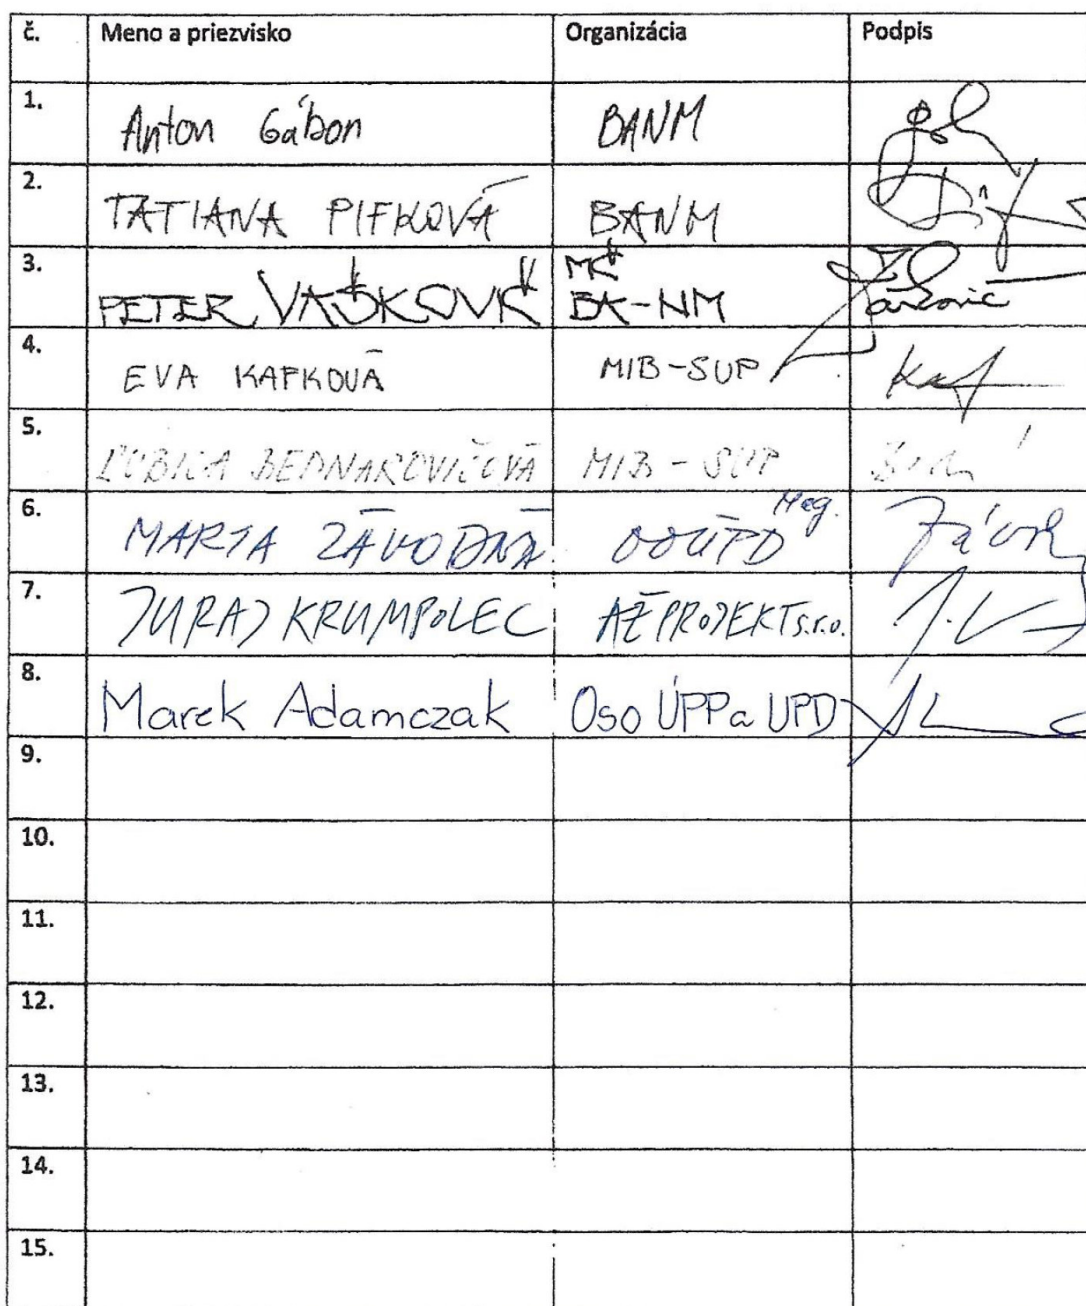 č. Meno a priezvisko Organizácia Podpis
1. Anton Gábon BANM
2. TATIANA PIFKOVÁ BANM
3. PETER VAŠKOVIČ MČ BA-NM
4. EVA KAPKOVÁ MIB-SUP
5. ĽUBICA BEDNAROVIČOVÁ MIB-SUP
6. MARTA ZÁVODNÁ OOÚPD Mag.
7. JURAJ KRUMPOLEC AŽ PROJEKT s.r.o.
8. Marek Adamczak Oso ÚPP a UPD
9.
10.
11.
12.
13.
14.
15.